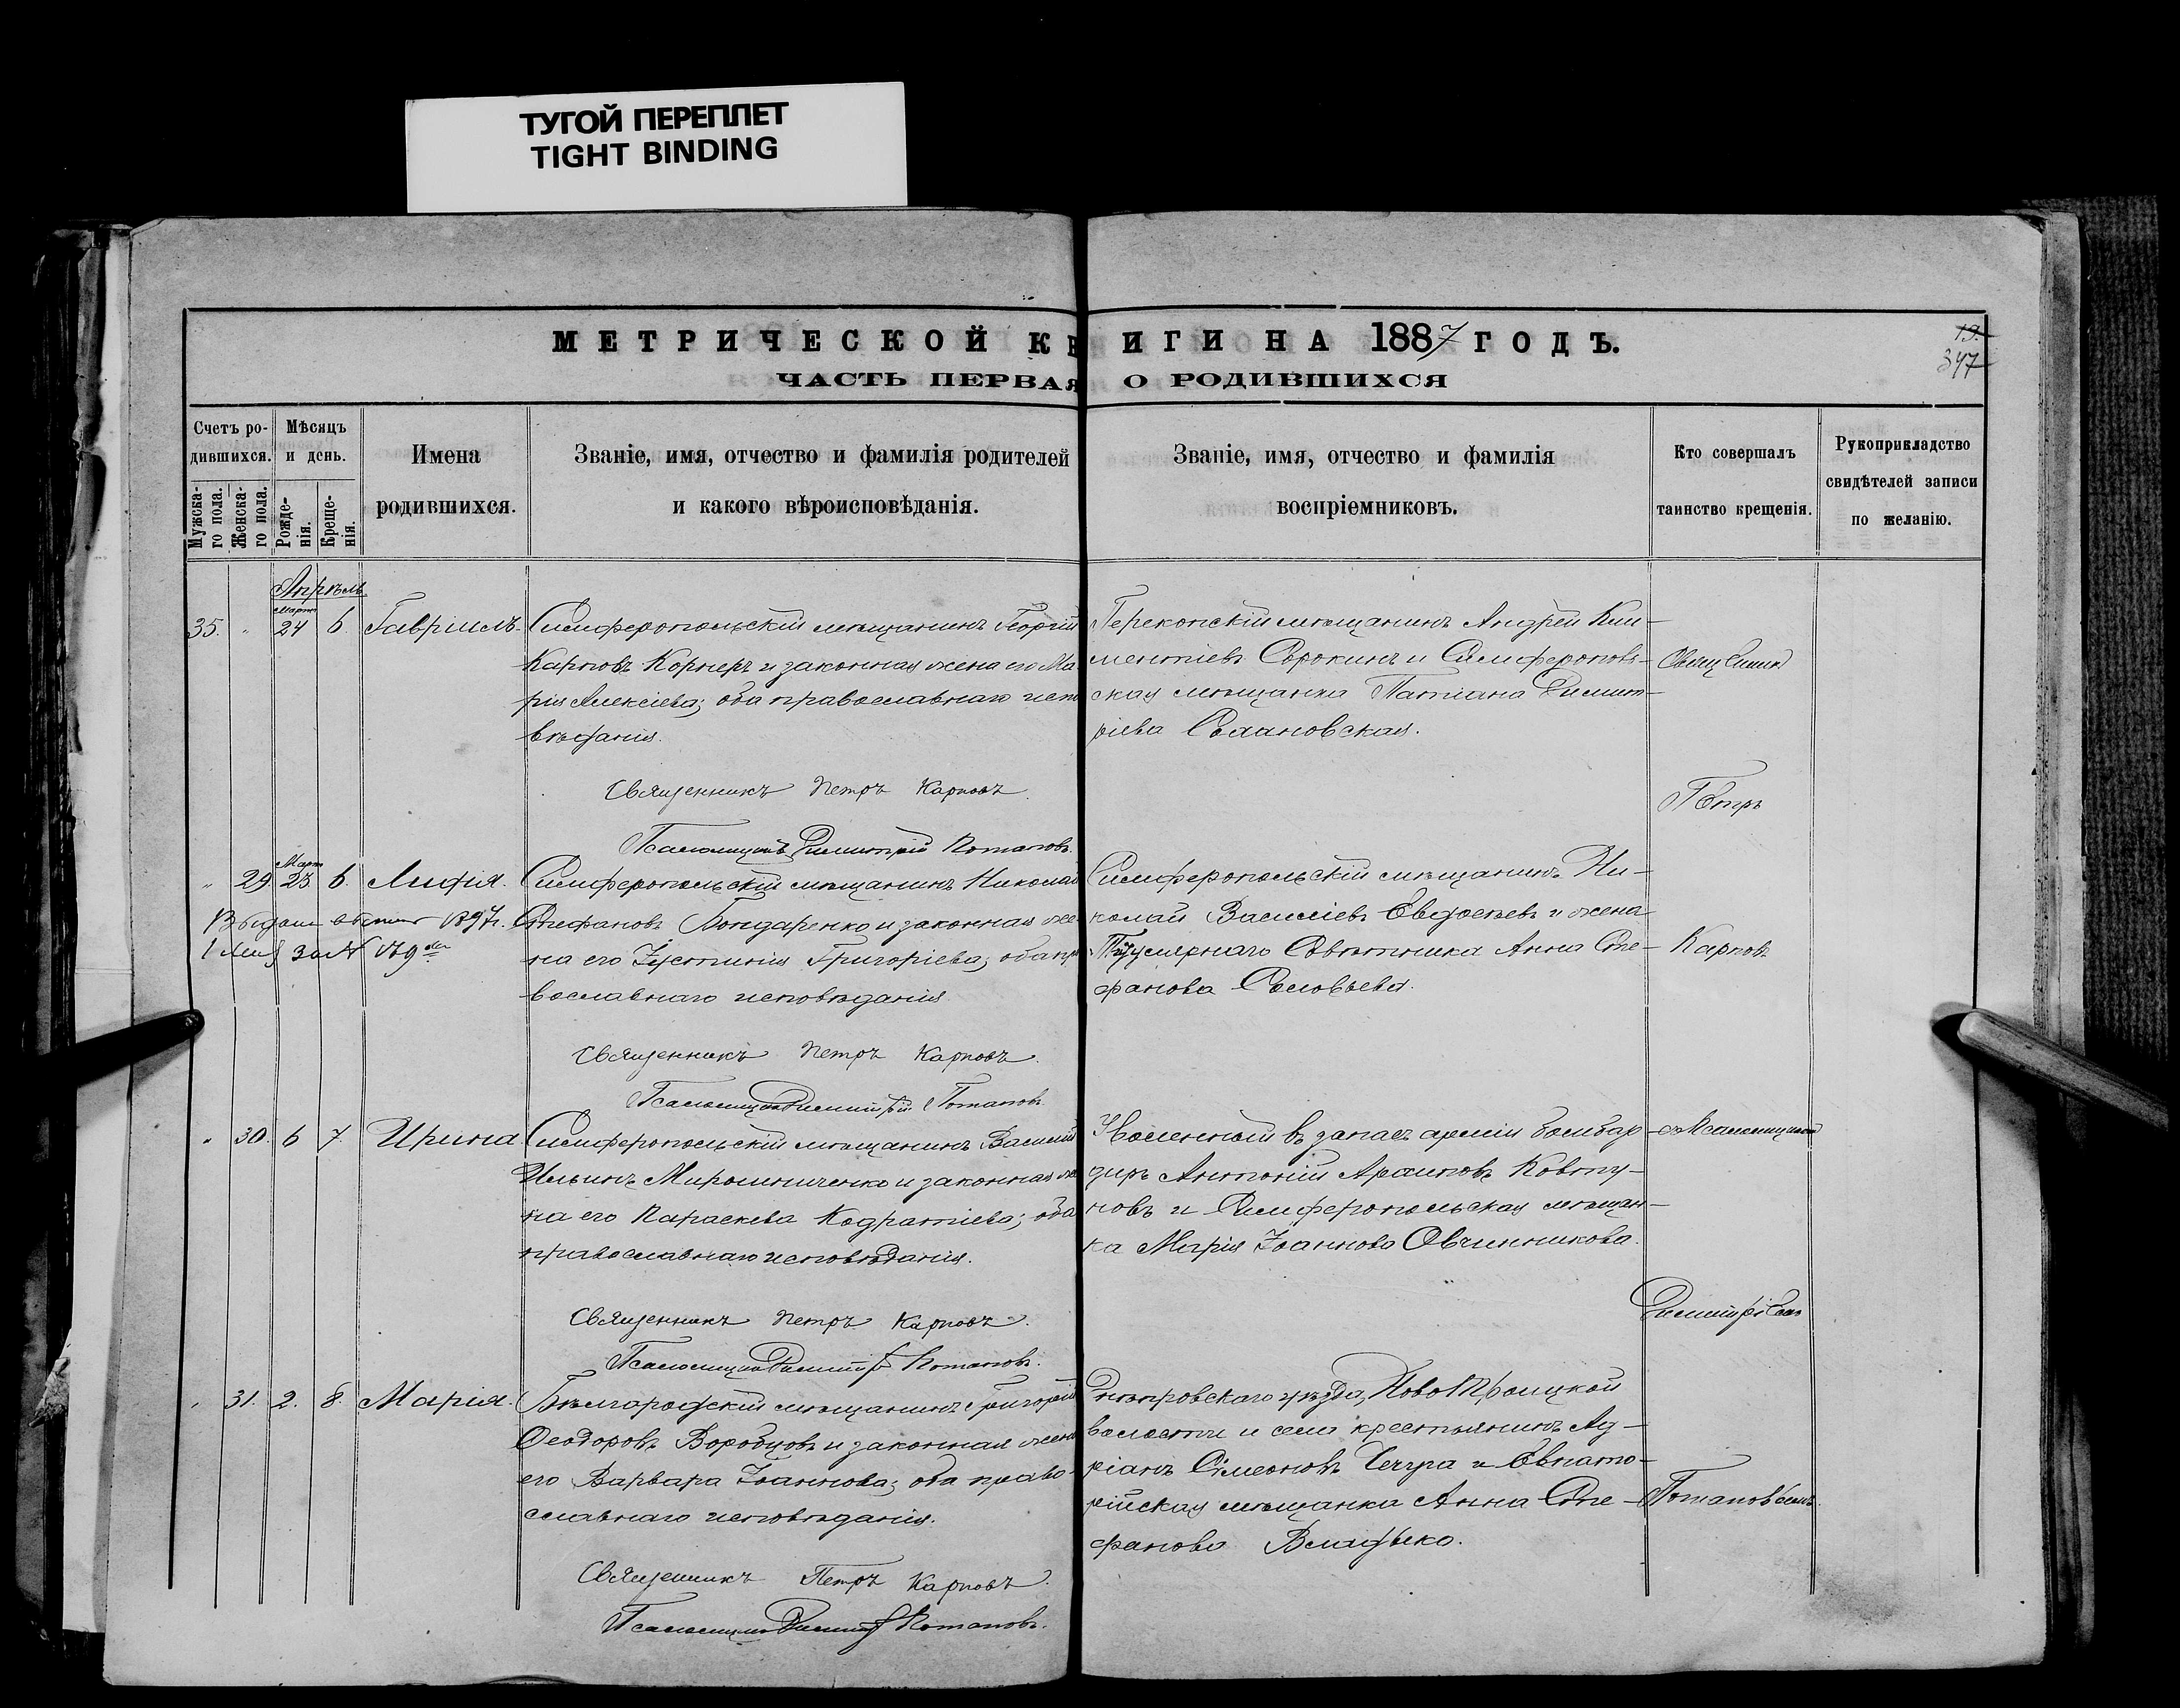 ТУГОЙ ПЕРЕПЛЕТ
TIGHT BINDING
МЕТРИЧЕСКОЙ КНИГИ НА 1887 ГОДЪ.
19.
347
ЧАСТЬ ПЕРВАЯ О РОДИВШИХСЯ
Счетъ ро-
дившихся.
Мужска-
го пола.
Женска-
го пола.
Мѣсяцъ
и день.
Рожде-
нія.
Креще-
нія.
Имена
родившихся.
Званіе, имя, отчество и фамилія родителей
и какого вѣроисповѣданія.
Званіе, имя, отчество и фамилія
воспріемниковъ.
Кто совершалъ
таинство крещенія.
Рукоприкладство
свидѣтелей записи
по желанію.
Апрѣль
Март
35. " 24 6. Гавріилъ.
Симферопольскій мѣщанинъ Георгій
Карповъ Корнеръ и законная жена его Ма
рія Алексіева; оба православнаго испо
вѣданія.
Священникъ Петръ Карповъ.
Псаломщикъ Димитрій Потаповъ.
Перекопскій мѣщанинъ Андрей Кли-
ментіевъ Сорокинъ и Симферополь-
ская мѣщанка Татіана Димит-
ріева
Священник
Петръ
Март
" 29 23 6. Лидія.
1897 г.
за №
Симферопольскій мѣщанинъ Николай
Стефановъ Бондаренко и законная же
на его Іустинія Григоріева; оба пра
вославнаго исповѣданія
Священникъ Петръ Карповъ.
Псаломщикъ Димитрій Потаповъ.
Симферопольскій мѣщанинъ Ни-
колай Василіевъ Евдосѣевъ и жена
Титулярнаго Совѣтника Анна Сте-
фанова Соловьева.
Карповъ
" 30. 6 7. Ирина
Симферопольскій мѣщанинъ Василій
Ильинъ Мирошниченко и законная же
на его Параскева Кодратіева; оба
православнаго исповѣданія.
Священникъ Петръ Карповъ.
Псаломщикъ Димитрій Потаповъ.
Уволенный въ запасъ арміи бомбар-
диръ Антоній Архиповъ Ковту-
новъ и Симферопольская мѣщан-
ка Марія Іоаннова Овчинникова.
съ Псаломщикомъ
Димитріемъ
" 31. 2. 8. Марія.
Бѣлгородскій мѣщанинъ Григорій
Ѳеодоровъ Воробцовъ и законная жена
его Варвара Іоаннова; оба право-
славнаго исповѣданія.
Священникъ Петръ Карповъ.
Псаломщикъ Димитрій Потаповъ.
Днѣпровскаго уѣзда, Ново Троицкой
волости и села крестьянинъ Ад-
ріанъ Симеоновъ и Евпато-
рійская мѣщанка Анна Сте-
фанова Владыко.
Потаповымъ.